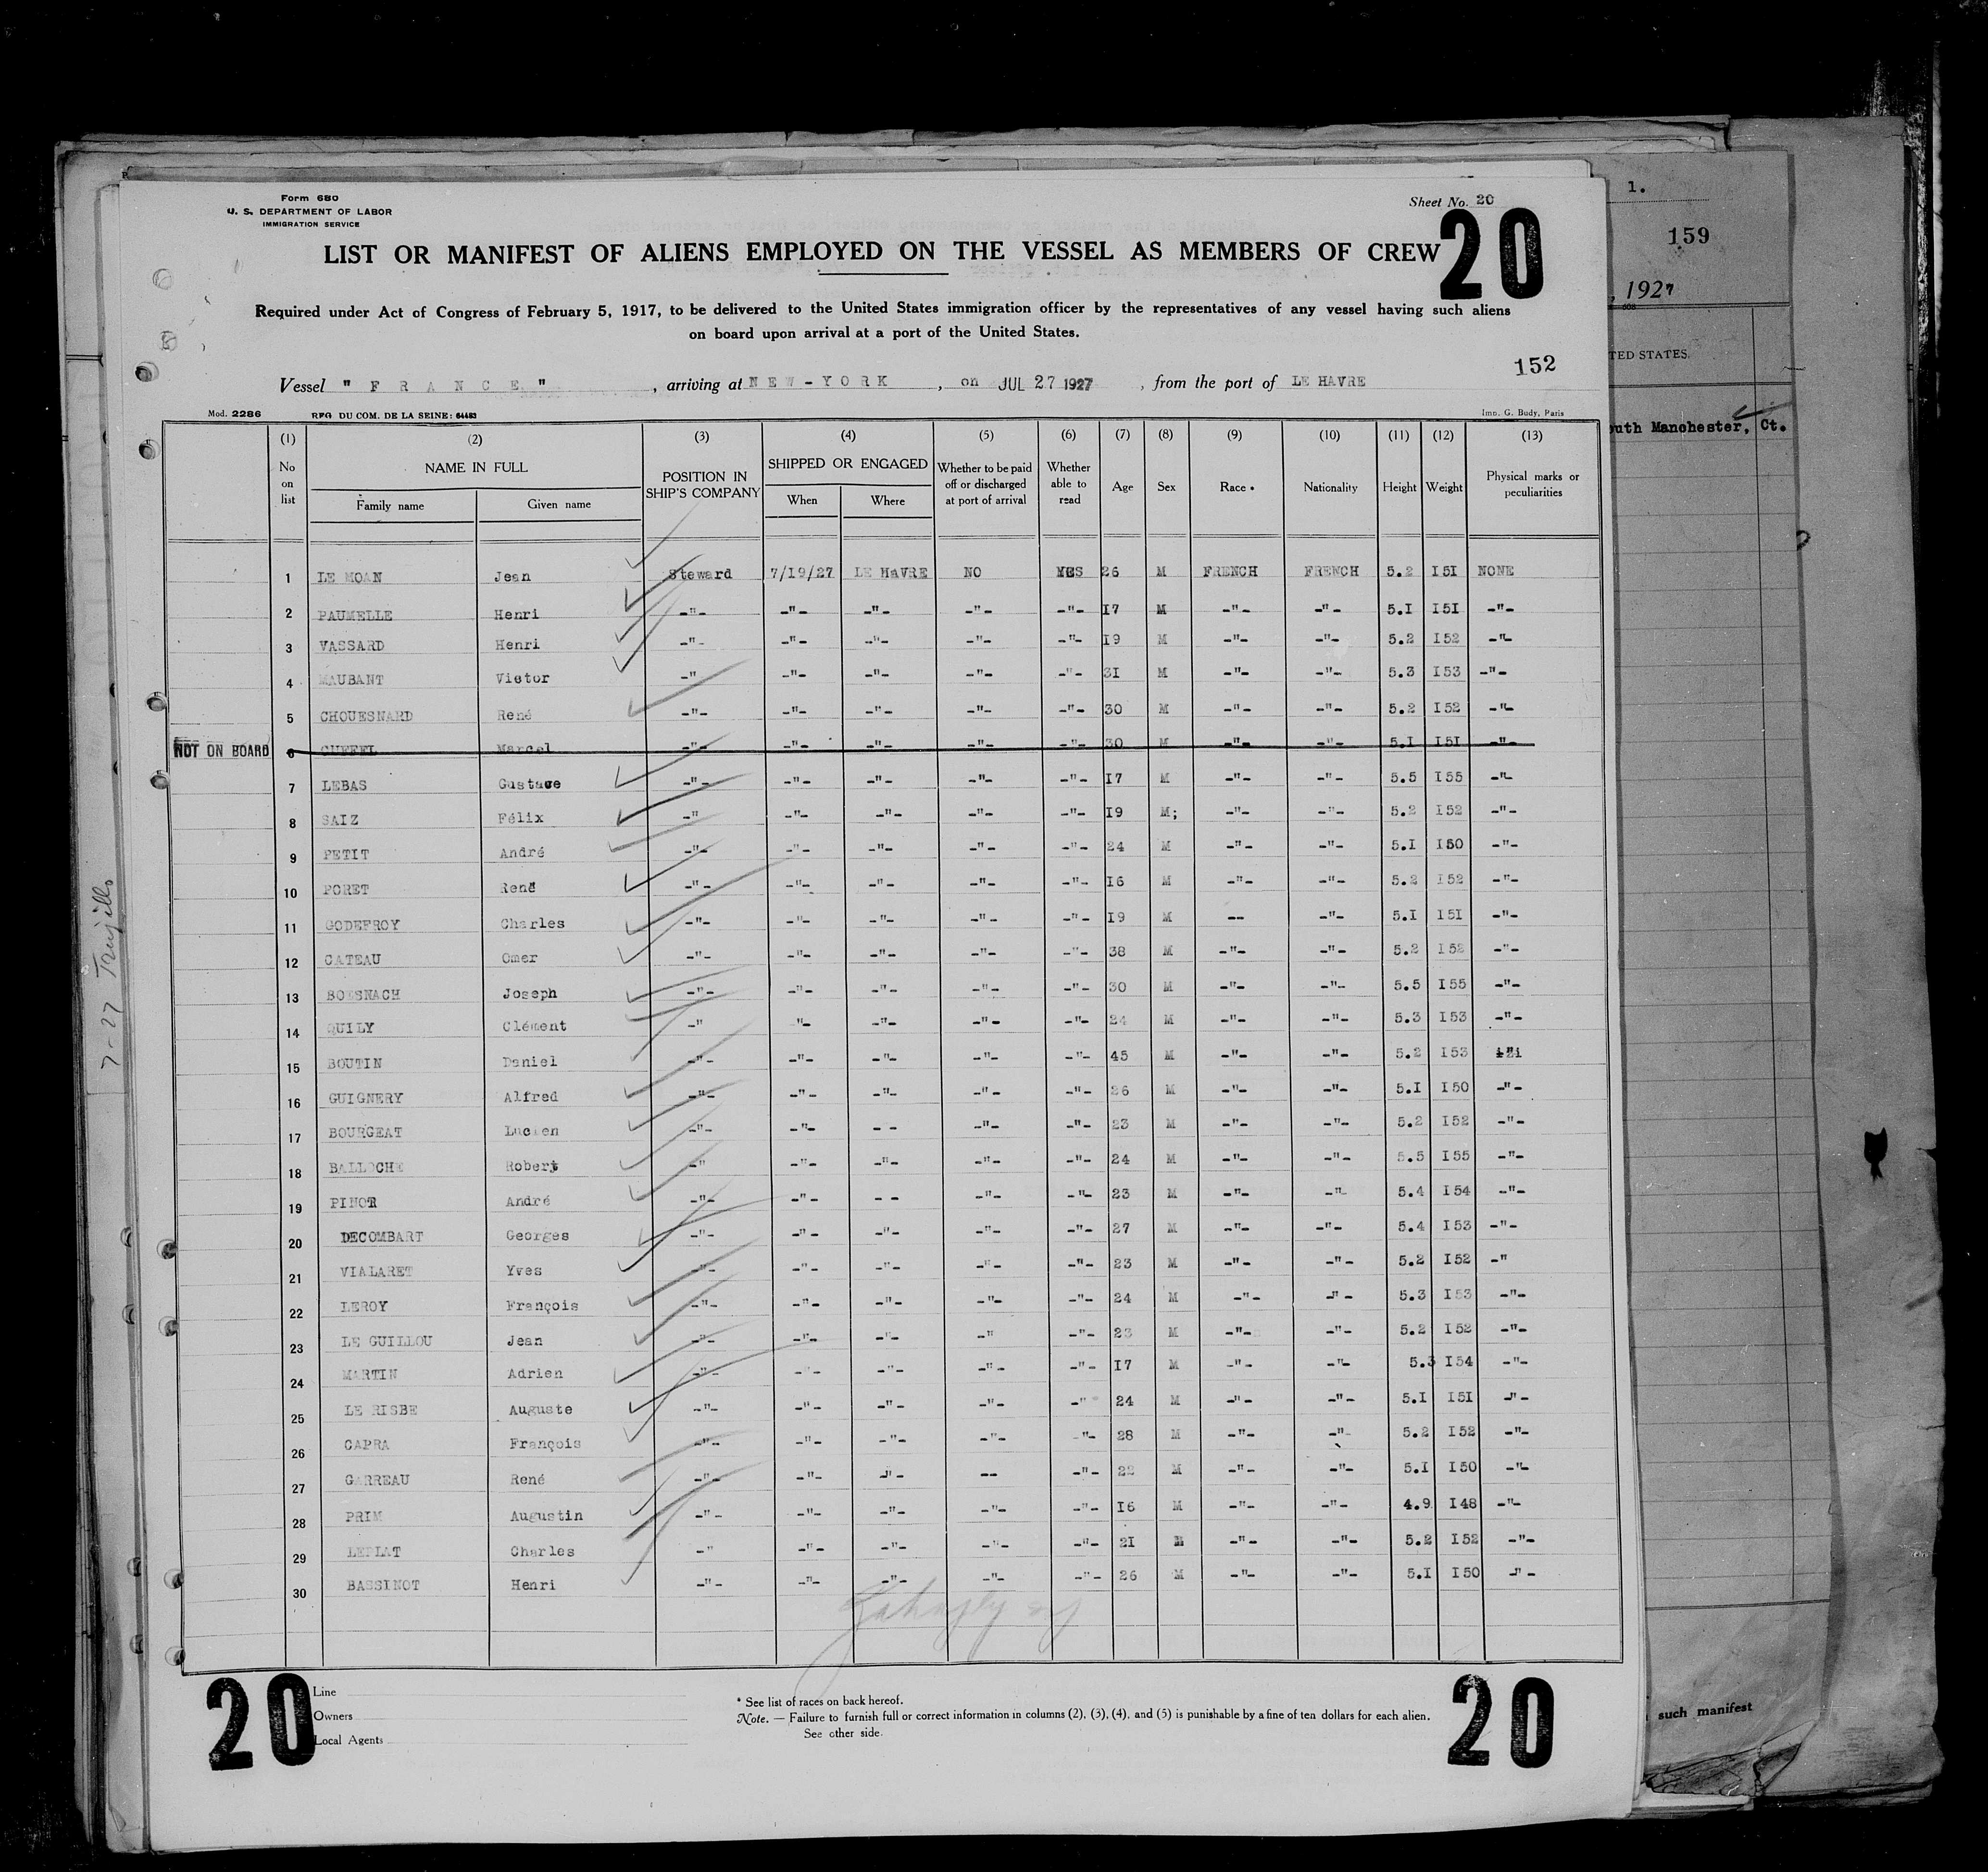 Form 680
U. S. DEPARTMENT OF LABOR
IMMIGRATION SERVICE
Sheet No. 20
20
LIST OR MANIFEST OF ALIENS EMPLOYED ON THE VESSEL AS MEMBERS OF CREW
Required under Act of Congress of February 5, 1917, to be delivered to the United States immigration officer by the representatives of any vessel having such aliens
on board upon arrival at a port of the United States.
152
Vessel " F R A N C E " , arriving at N E W - Y O R K , on JUL 27 1927 , from the port of LE HAVRE
Mod. 2286 REG DU COM. DE LA SEINE: 64483 Imp. G. Budy, Paris
(1) (2) (3) (4) (5) (6) (7) (8) (9) (10) (11) (12) (13)
No on list NAME IN FULL Family name Given name POSITION IN SHIP'S COMPANY SHIPPED OR ENGAGED When Where Whether to be paid off or discharged at port of arrival Whether able to read Age Sex Race * Nationality Height Weight Physical marks or peculiarities
1 LE MOAN Jean Steward 7/19/27 LE HAVRE NO YES 26 M FRENCH FRENCH 5.2 I5I NONE
2 PAUMELLE Henri -"- -"- -"- -"- -"- I7 M -"- -"- 5.I I5I -"-
3 VASSARD Henri -"- -"- -"- -"- -"- I9 M -"- -"- 5.2 I52 -"-
4 MAUBANT Victor -" -"- -"- -"- -"- 3I M -"- -"- 5.3 I53 -"-
5 CHOUESNARD René -"- -"- -"- -"- -"- 30 M -"- -"- 5.2 I52 -"-
NOT ON BOARD 6 CUFFEL Marcel -"- -"- -"- -"- -"- 30 M -"- -"- 5.I I5I -"-
7 LEBAS Gustave -"- -"- -"- -"- -"- I7 M -"- -"- 5.5 I55 -"-
8 SAIZ Félix -" -"- -"- -"- -"- I9 M; -"- -"- 5.2 I52 -"-
9 PETIT André -"- -"- -"- -"- -"- 24 M -"- -"- 5.I I50 -"-
10 PORET René -"- -"- -"- -"- -"- I6 M -"- -"- 5.2 I52 -"-
11 GODEFROY Charles -"- -"- -"- -"- -"- I9 M -- -"- 5.I I5I -"-
12 CATEAU Omer -"- -"- -"- -"- -"- 38 M -"- -"- 5.2 I52 -"-
13 BOESNACH Joseph -"- -"- -"- -"- -"- 30 M -"- -"- 5.5 I55 -"-
14 QUILY Clément -" -"- -"- -"- -"- 24 M -"- -"- 5.3 I53 -"-
15 BOUTIN Daniel -"- -"- -"- -"- -"- 45 M -"- -"- 5.2 I53
16 GUIGNERY Alfred -"- -"- -"- -"- -"- 26 M -"- -"- 5.I I50 -"-
17 BOURGEAT Lucien -"- -"- - - -"- -"- 23 M -"- -"- 5.2 I52 -"-
18 BALLOCHE Robert -" -"- -"- -"- -"- 24 M -"- -"- 5.5 I55 -"-
19 PINOT André -"- -"- - - -"- -"- 23 M -"- -"- 5.4 I54 -"-
20 DECOMBART Georges -"- -"- -"- -"- -"- 27 M -"- -"- 5.4 I53 -"-
21 VIALARET Yves -"- -"- -"- -"- -"- 23 M -"- -"- 5.2 I52 -"
22 LEROY François -"- -"- -"- -"- -"- 24 M -"- -"- 5.3 I53 -"-
23 LE GUILLOU Jean -"- -"- -"- -" -"- 23 M -"- -"- 5.2 I52 -"-
24 MARTIN Adrien -"- -"- -"- -"- -"- I7 M -"- -"- 5.3 I54 -"-
25 LE RISBE Auguste -"- -"- -"- -"- -"- 24 M -"- -"- 5.I I5I -"-
26 CAPRA François -"- -"- -"- -"- -"- 28 M -"- -"- 5.2 I52 -"-
27 GARREAU René -"- -"- -"- -- -"- 22 M -"- -"- 5.I I50 -"-
28 PRIM Augustin -"- -"- -"- -"- -"- I6 M -"- -"- 4.9 I48 -"-
29 LEPLAT Charles -" -"- -"- -"- -"- 2I M -"- -"- 5.2 I52 -"-
30 BASSINOT Henri -"- -"- -"- -"- -"- 26 M -"- -"- 5.I I50 -"-
20
Line
Owners
Local Agents
* See list of races on back hereof.
Note. — Failure to furnish full or correct information in columns (2), (3), (4), and (5) is punishable by a fine of ten dollars for each alien.
See other side.
20
7-27 Trujillo
1.
159
, 1927
TED STATES.
outh Manchester, Ct.
such manifest